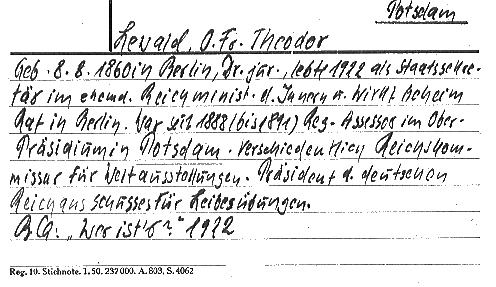 Potsdam
Lewald, O. Fr. Theodor
Geb. 8. 8. 1860 in Berlin, Dr. jur., lebte 1922 als Staatssekre-
tär im ehemd. Reichminist. d. Innern u. Wirkl. Geheim
Rat in Berlin. War seit 1888 (bis 1891) Reg.-Assessor im Ober-
Präsidium in Potsdam. Verschiedentlich Reichskom-
missar für Weltausstellungen. Präsident d. deutschen
Reichausschusses für Leibesübungen.
B.Q: „Wer ist's?" 1922
Reg. 10. Stichnote. 1.50. 237000. A. 803. S. 4062